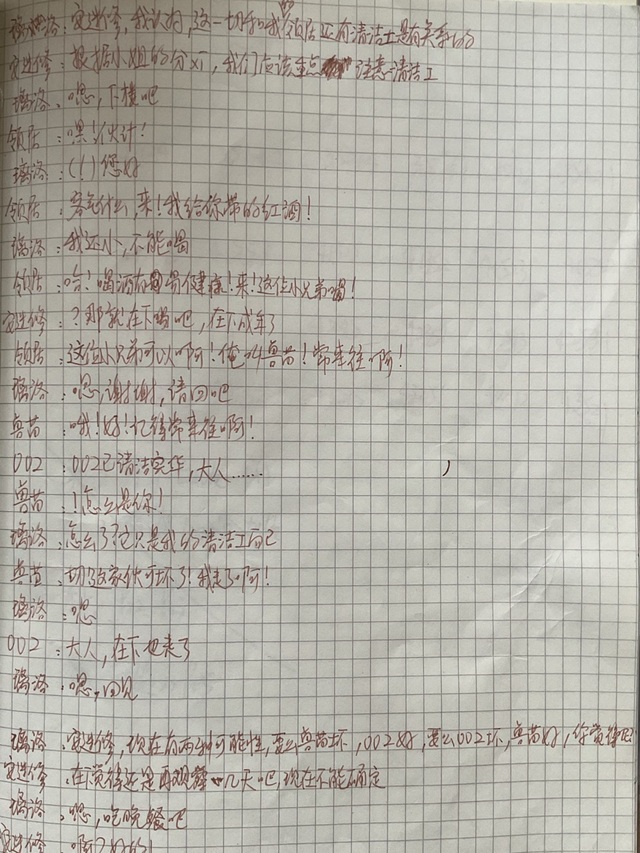 璃洛：安进修，我认为，这一切和我的领居还有清洁工是有关系的
安进修：根据小姐的分析，我们应该重点注意清洁工
璃洛：嗯，下楼吧
领居：嘿！伙计！
璃洛：(！)您好
领居：客气什么，来！我给你带的红酒！
璃洛：我还小，不能喝
领居：哈！喝酒有易健康！来！这位小兄弟喝！
安进修：？那就在下喝吧，在下成年了
领居：这位小兄弟可以啊！俺叫兽苗！常来往啊！
璃洛：嗯，谢谢，请回吧
兽苗：哦！好！记得常来往啊！
002：002已清洁完毕，大人……
兽苗：！怎么是你！
璃洛：怎么了？它只是我的清洁工而已
兽苗：切！这家伙可坏了！我走了啊！
璃洛：嗯
002：大人，在下也走了
璃洛：嗯，回见
璃洛：安进修，现在有两种可能性，要么兽苗坏，002好，要么002坏，兽苗好，你觉得呢
安进修：在下觉得还是再观察几天吧，现在不能确定
璃洛：嗯，吃晚餐吧
安进修：啊？好的！